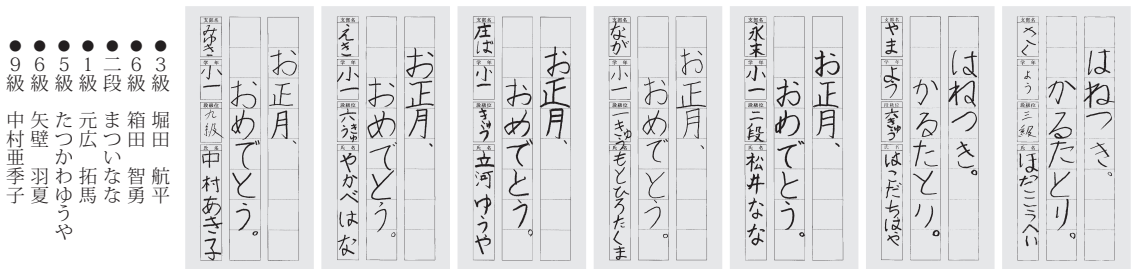 はねつき。
かるたとり。
支部名 学年 よう 段級位 三級 氏名 ほだこうへい
はねつき。
かるたとり。
支部名 やま 学年 よう 段級位 六きゅう 氏名 はこだちはや
お正月、
おめでとう。
支部名 永末 学年 小一 段級位 二段 氏名 松井なな
お正月、
おめでとう。
支部名 なが 学年 小一 段級位 一きゅう 氏名 もとひろたくま
お正月、
おめでとう。
支部名 庄ば 学年 小一 段級位 きゅう 氏名 立河ゆうや
お正月、
おめでとう。
支部名 えき 学年 小一 段級位 六きゅう 氏名 やかべはな
お正月、
おめでとう。
支部名 みゆき 学年 小一 段級位 九級 氏名 中村あき子
●3級 堀田 航平
●6級 箱田 智勇
●二段 まついなな
●1級 元広 拓馬
●5級 たつかわゆうや
●6級 矢壁 羽夏
●9級 中村亜季子